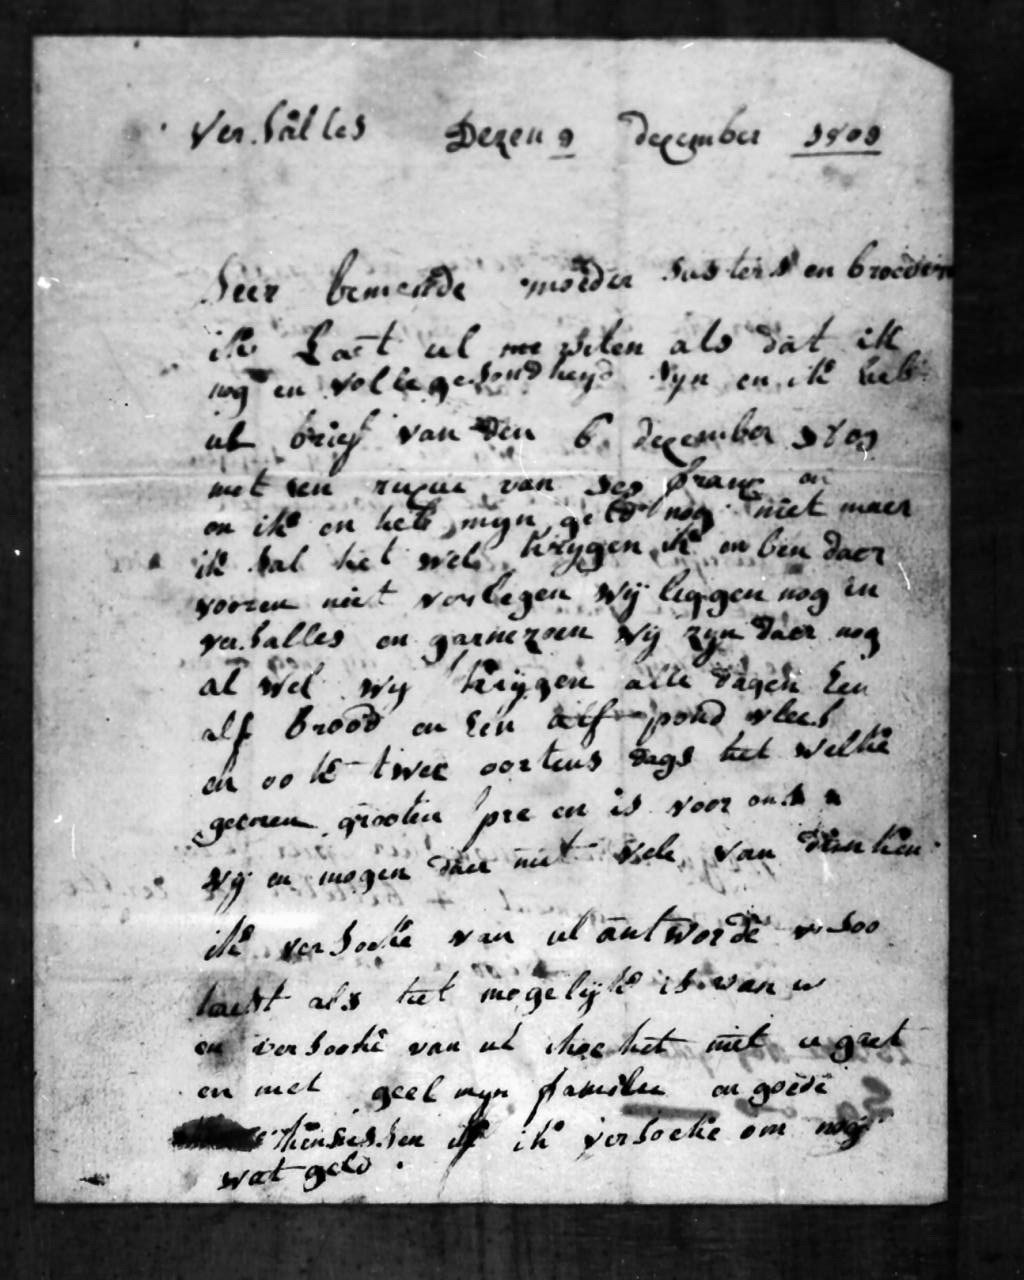 versalles Dezen 9 dezember 1809
seer bemende moeder susters en broeders
ik Laet ul me weten als dat ik
nog en volle gesondheyd syn en ik heb
ul brief van den 6 dezember 1809
met een van franz
en ik en heb myn geld nog niet maer
ik sal het wel krygen ik en ben daer
vooren niet verlegen wy leggen nog in
versalles en garnezoen wy zyn daer nog
al wel wy krijgen alle dagen een
alf brood en een alf pond vlees
en ook twee oortens dags het welke
geenen grooten pre en is voor ons
wy en mogen daer niet vele van drinken
ik versoeke van ul antworde
als het mogelijk is van u
en versoeke van ul hoe het met u gaet
en met geel myn familie en goede
kennessen ik versoeke om nog
wat geld